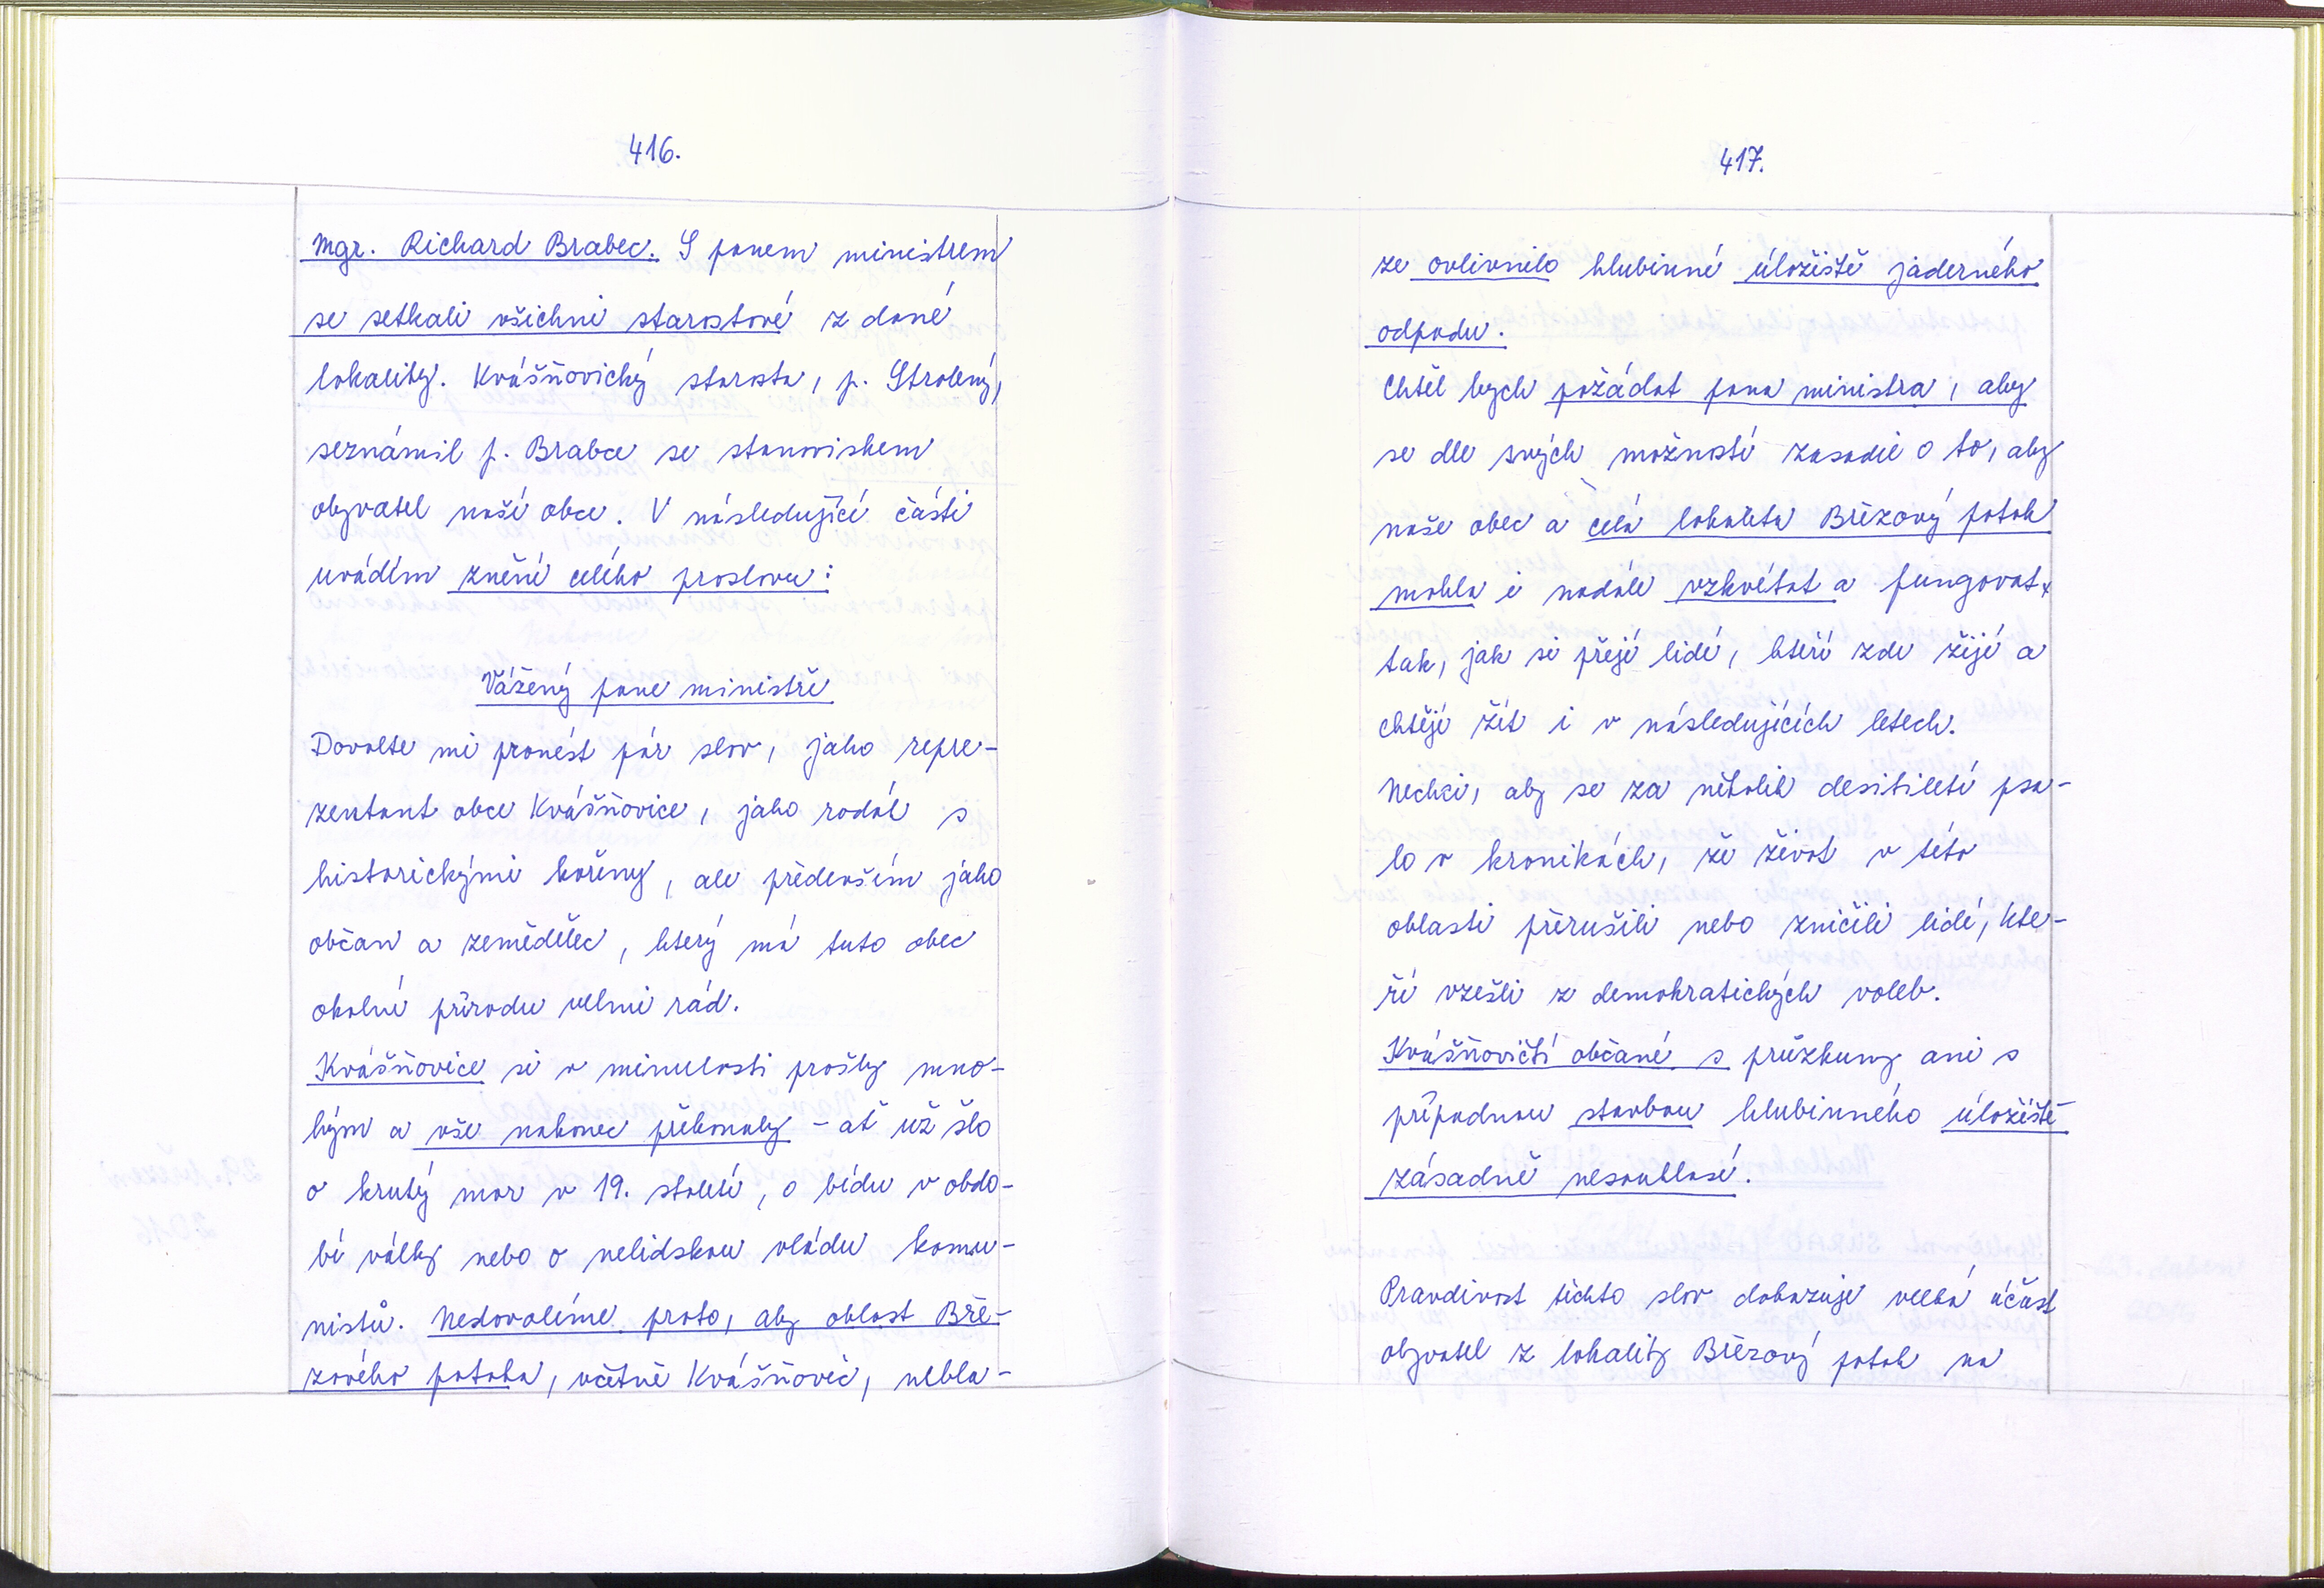 416.
Mgr. Richard Brabec. S panem ministrem
se setkali všichni starostové z dané
lokality. Kvášňovický starosta, p. Strolený,
seznámil p. Brabce se stanoviskem
obyvatel naší obce. V následující části
uvádím znění celého proslovu:
Vážený pane ministře
Dovolte mi pronést pár slov, jako repre-
zentant obce Kvášňovice, jako rodák s
historickými kořeny, ale především jako
občan a zemědělec, který má tuto obec
okolní přírodu velmi rád.
Kvášňovice si v minulosti prošly mno-
hým a vše nakonec překonaly - ať už šlo
o krutý mor v 19. století, o bídu v obdo-
bí války nebo o nelidskou vládu komu-
nistů. Nedovolíme proto, aby oblast Bře-
zového potoka, včetně Kvášňovic, nebla-
417.
ze ovlivnilo hlubinné úložiště jaderného
odpadu.
Chtěl bych požádat pana ministra, aby
se dle svých možností zasadil o to, aby
naše obec a celá lokalita Březový potok
mohla i nadále vzkvétat a fungovat
tak, jak si přejí lidé, kteří zde žijí a
chtějí žít i v následujících letech.
Nechci, aby se za několik desítiletí psa-
lo v kronikách, že život v této
oblasti přerušili nebo zničili lidé, kte-
ří vzešli z demokratických voleb.
Kvášňovičtí občané s průzkumy ani s
případnou stavbou hlubinného úložiště
zásadně nesouhlasí.
Pravdivost těchto slov dokazuje velká účast
obyvatel z lokality Březový potok na